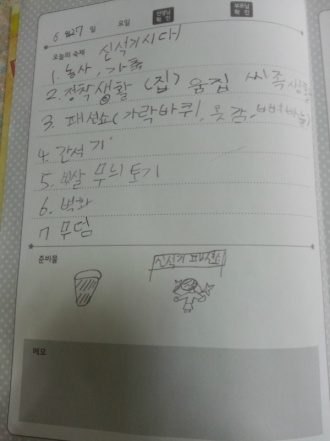 6 월 27 일 요일 선생님 확인 부모님 확인
오늘의 숙제 신석기시대
1. 농사, 가축
2. 정착생활 (집) 움집 씨족생활
3. 패션쇼(가락바퀴, 옷감, 뼈바늘)
4. 간석기
5. 빗살 무늬 토기
6. 벽화
7 무덤
준비물
신석기 패션쇼
메모